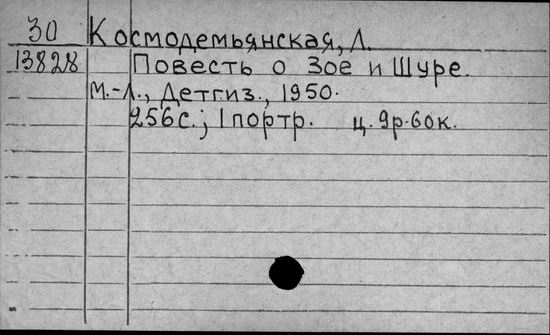 30 Космодемьянская, Л.
13828 Повесть о Зое и Шуре.
М.-Л., Детгиз., 1950.
256с.; 1портр. ц. 9р.60к.